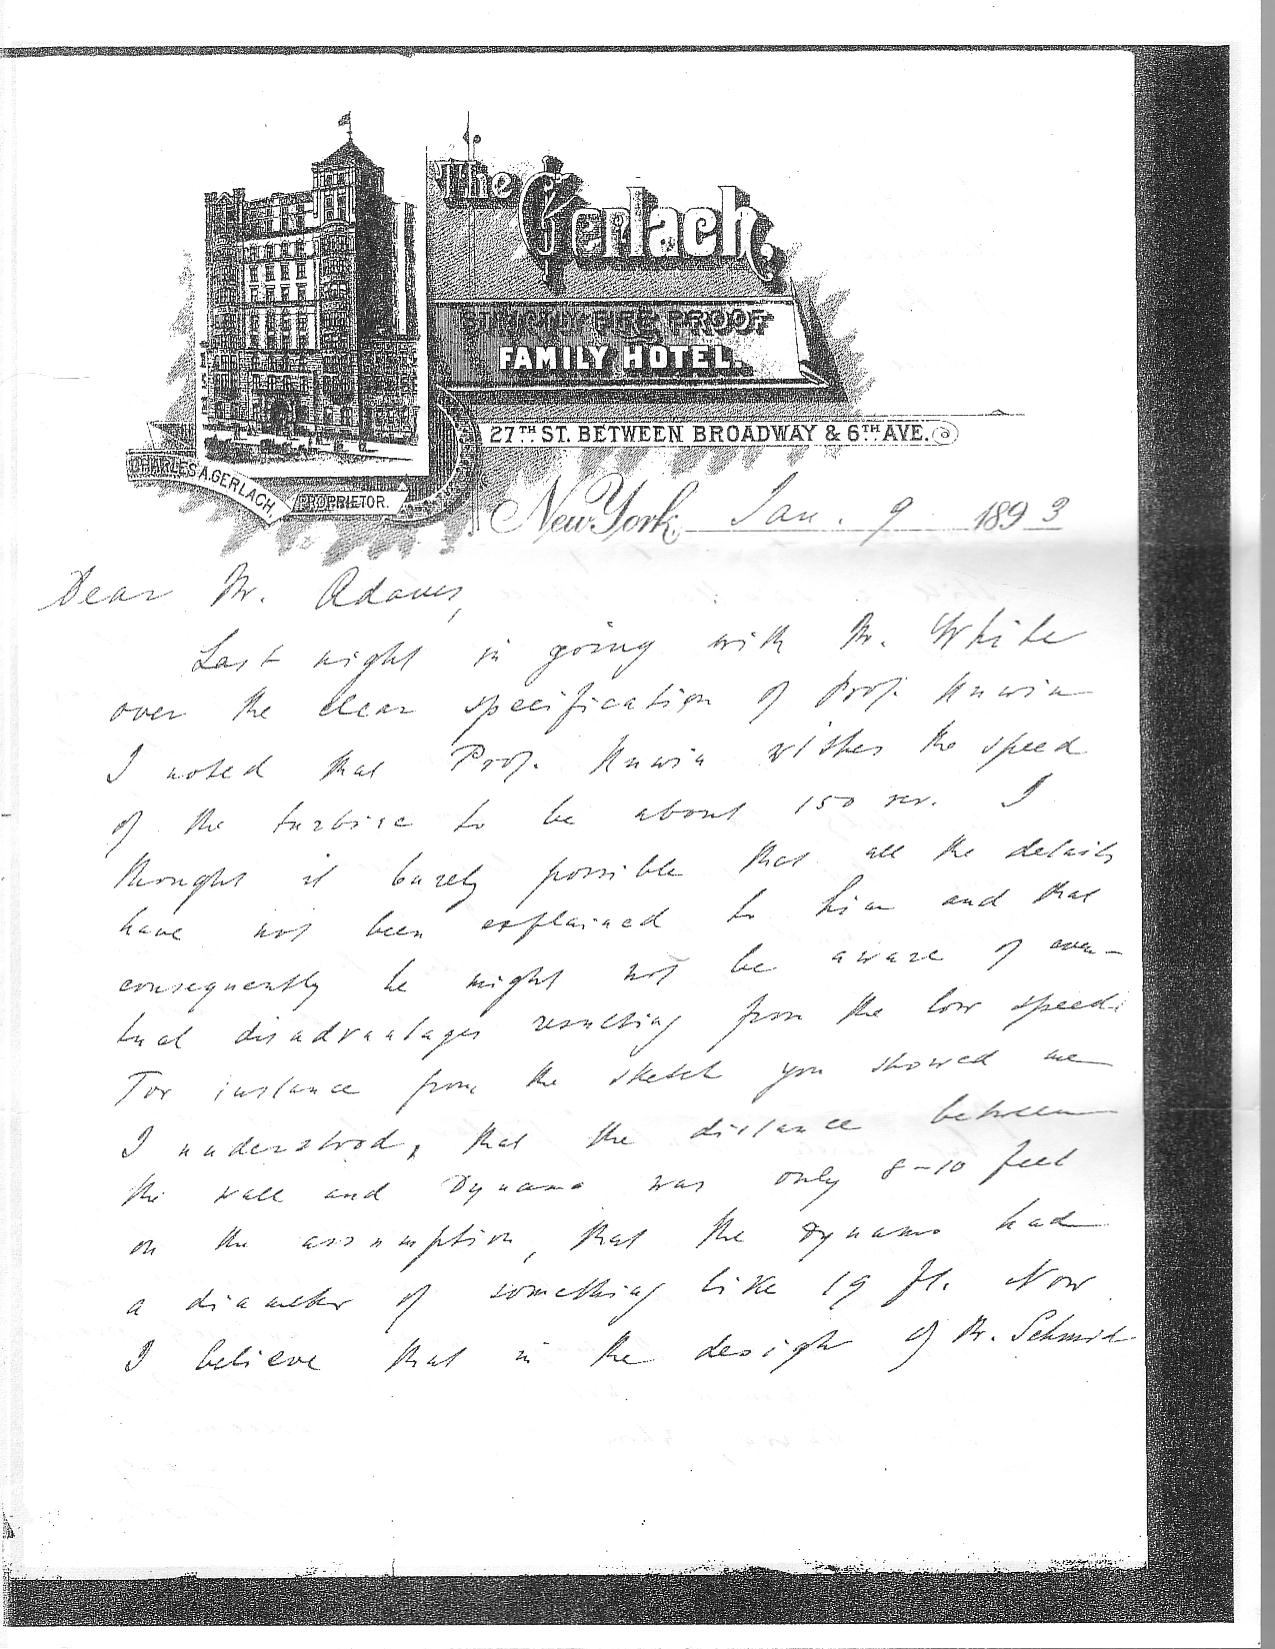 The Gerlach.
STRICTLY FIRE PROOF
FAMILY HOTEL.
27TH ST. BETWEEN BROADWAY & 6TH AVE.
CHARLES A. GERLACH,
PROPRIETOR.
New York, Jan. 9 1893
Dear Mr. Adams,
Last night in going with Mr. White
over the clear specification of Prof. Unwin
I noted that Prof. Unwin wishes the speed
of the turbine to be about 150 rev. I
thought it barely possible that all the details
have not been explained to him and that
consequently he might not be aware of even-
tual disadvantages resulting from the low speed.
For instance from the sketch you showed me
I understood, that the distance between
the wall and Dynamo was only 8-10 feet
on the assumption, that the Dynamo had
a diameter of something like 19 ft. Now
I believe that in the design of Mr. Schmid